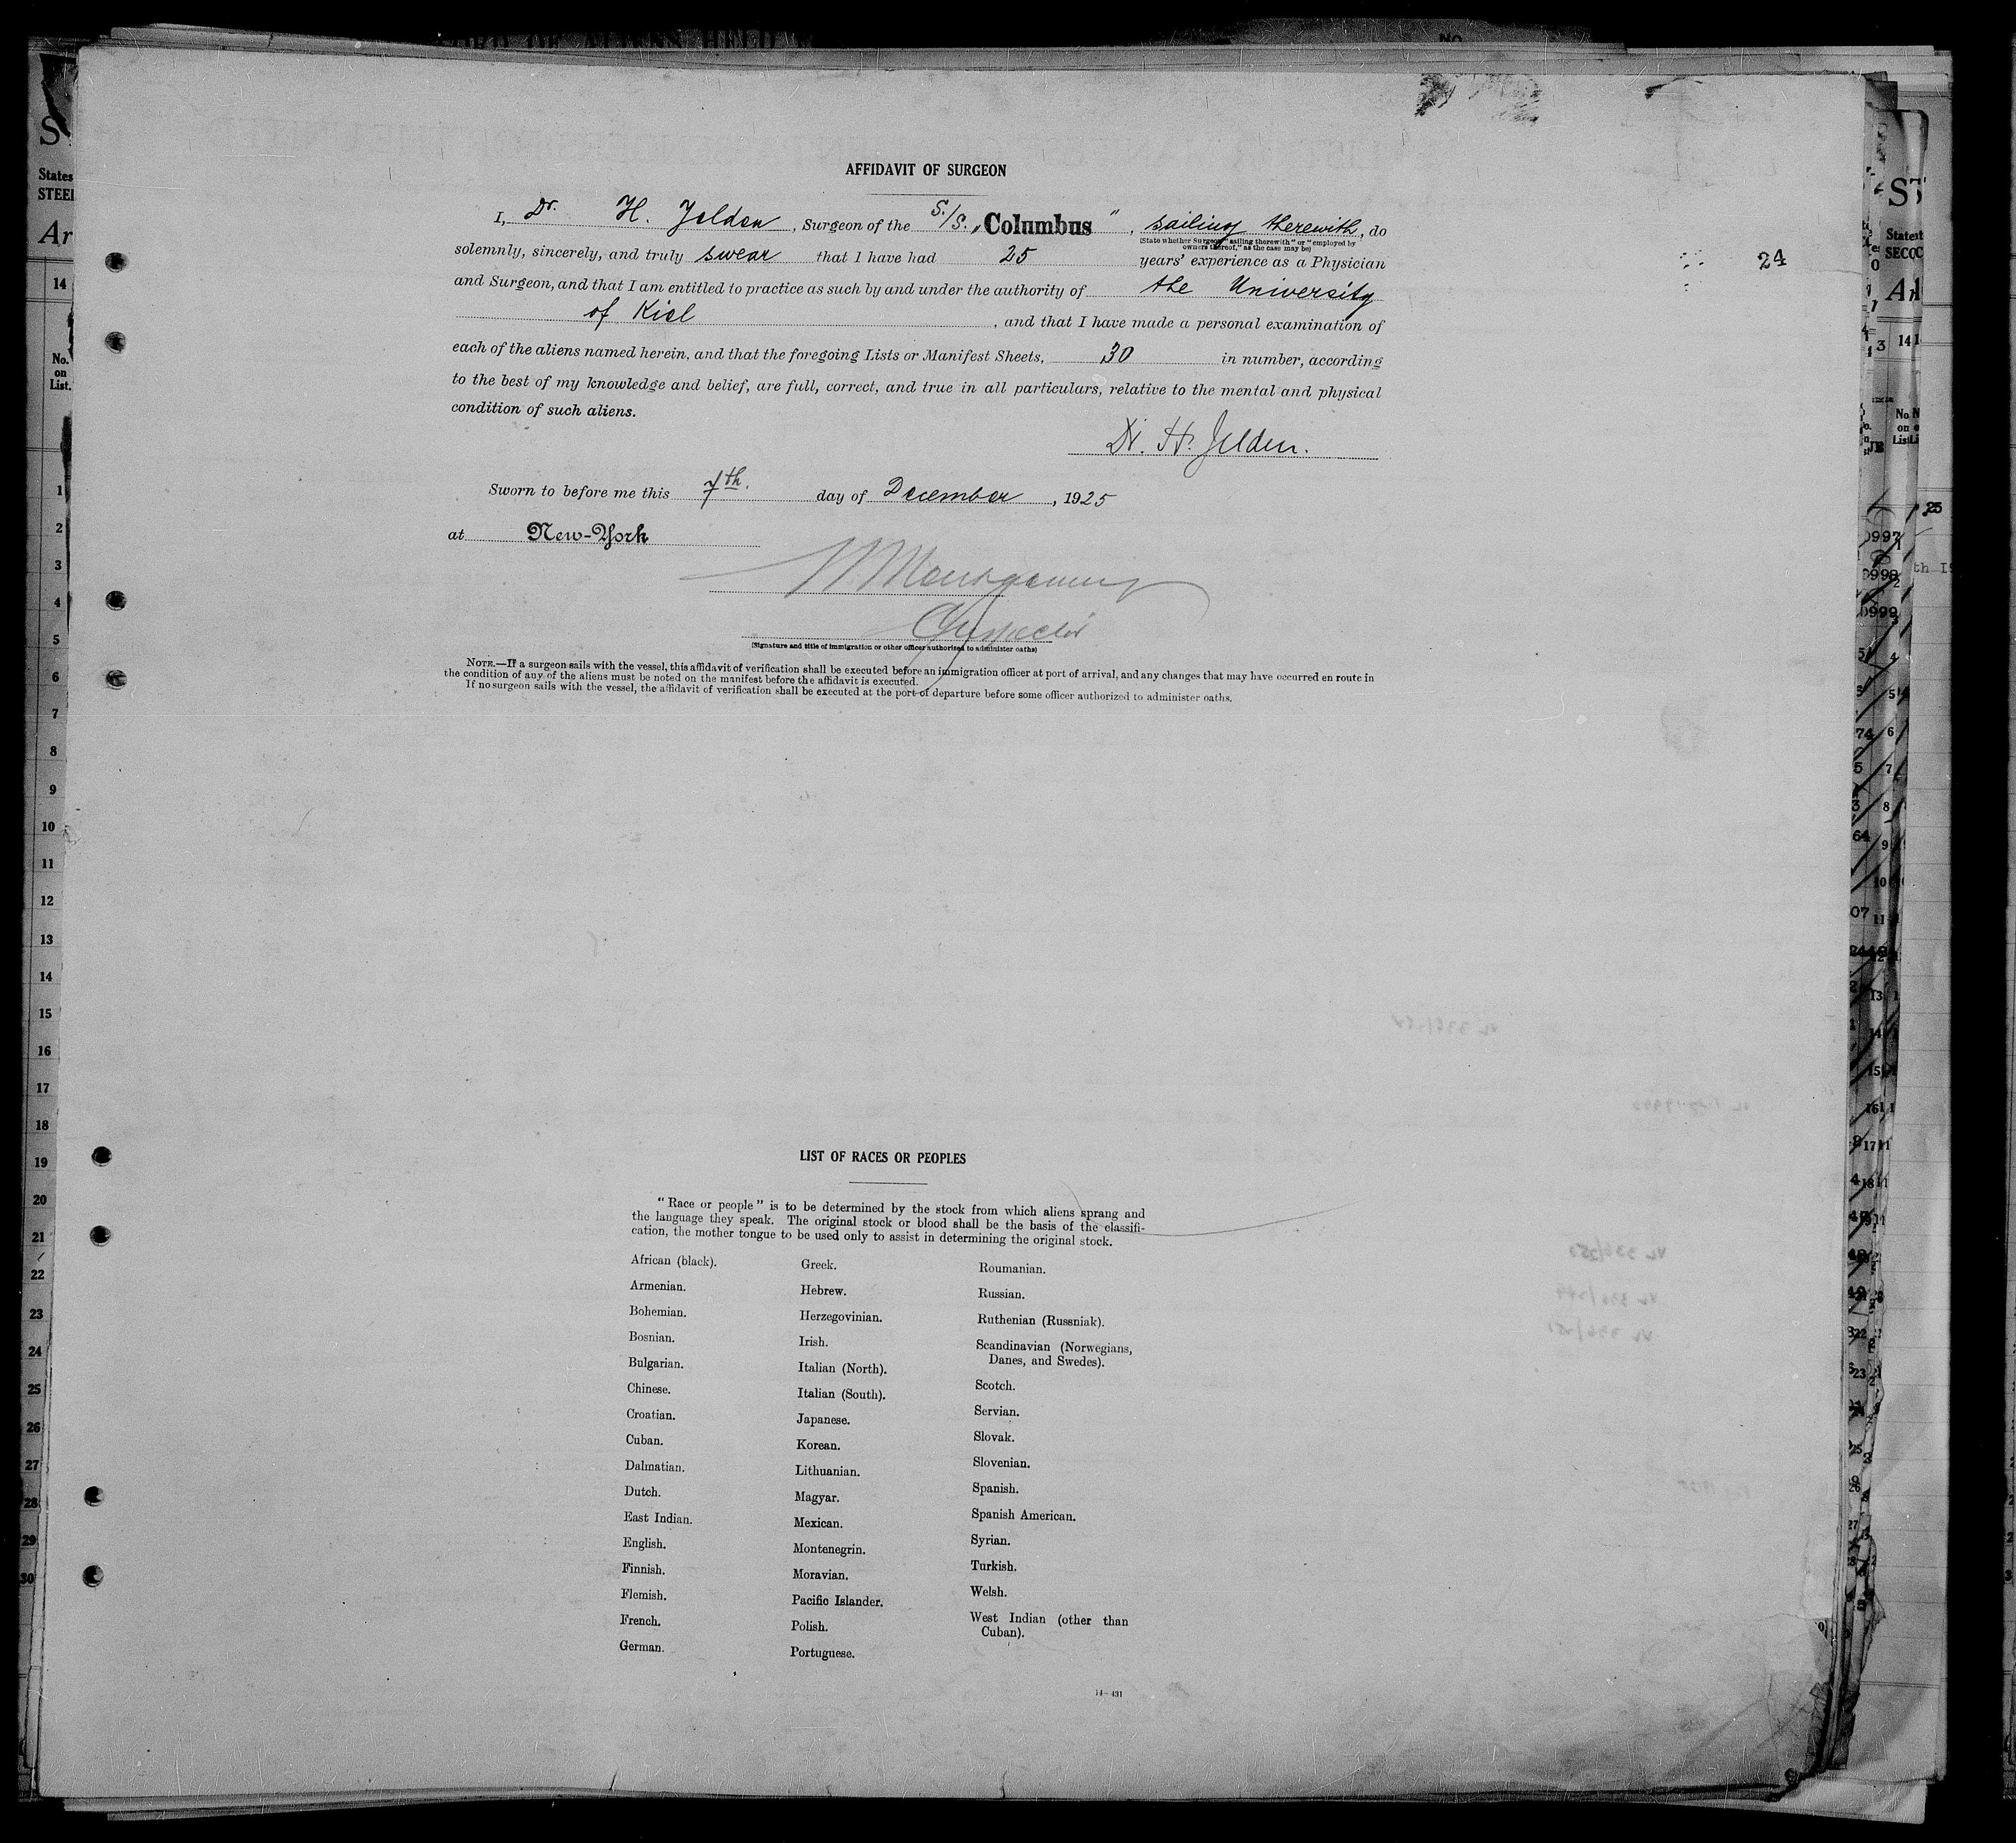 AFFIDAVIT OF SURGEON
I, Dr. H. Jelden, Surgeon of the S./S. „Columbus", sailing therewith, do
(State whether Surgeon "sailing therewith" or "employed by
owners thereof," as the case may be)
solemnly, sincerely, and truly swear that I have had 25 years' experience as a Physician
24
and Surgeon, and that I am entitled to practice as such by and under the authority of the University
of Kiel, and that I have made a personal examination of
each of the aliens named herein, and that the foregoing Lists or Manifest Sheets, 30 in number, according
to the best of my knowledge and belief, are full, correct, and true in all particulars, relative to the mental and physical
condition of such aliens.
Dr. H. Jelden.
Sworn to before me this 7th. day of December, 1925
at New-York
Montgomery
Inspector
(Signature and title of immigration or other officer authorized to administer oaths)
NOTE.—If a surgeon sails with the vessel, this affidavit of verification shall be executed before an immigration officer at port of arrival, and any changes that may have occurred en route in
the condition of any of the aliens must be noted on the manifest before the affidavit is executed.
If no surgeon sails with the vessel, the affidavit of verification shall be executed at the port of departure before some officer authorized to administer oaths.
LIST OF RACES OR PEOPLES
"Race or people" is to be determined by the stock from which aliens sprang and
the language they speak. The original stock or blood shall be the basis of the classifi-
cation, the mother tongue to be used only to assist in determining the original stock.
African (black).
Armenian.
Bohemian.
Bosnian.
Bulgarian.
Chinese.
Croatian.
Cuban.
Dalmatian.
Dutch.
East Indian.
English.
Finnish.
Flemish.
French.
German.
Greek.
Hebrew.
Herzegovinian.
Irish.
Italian (North).
Italian (South).
Japanese.
Korean.
Lithuanian.
Magyar.
Mexican.
Montenegrin.
Moravian.
Pacific Islander.
Polish.
Portuguese.
Roumanian.
Russian.
Ruthenian (Russniak).
Scandinavian (Norwegians,
Danes, and Swedes).
Scotch.
Servian.
Slovak.
Slovenian.
Spanish.
Spanish American.
Syrian.
Turkish.
Welsh.
West Indian (other than
Cuban).
14—431
States
STEE
14
No.
on
List.
1
2
3
4
5
6
7
8
9
10
11
12
13
14
15
16
17
18
19
20
21
22
23
24
25
26
27
28
29
30